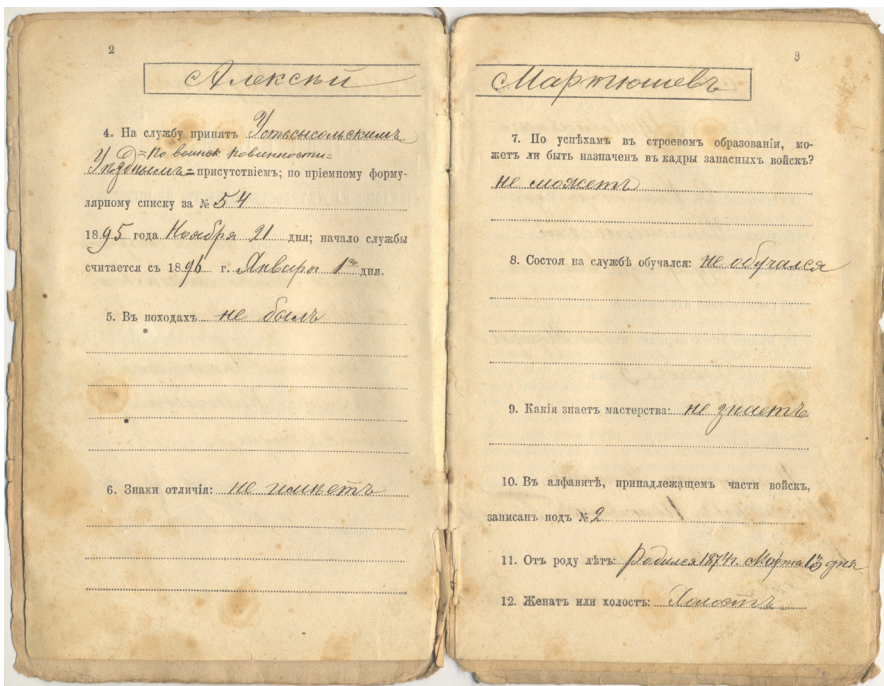 2
Алексѣй
4. На службу принятъ Устьсысольскимъ
=по воинск повинности=
Уѣзднымъ= присутствіемъ; по пріемному форму-
лярному списку за № 54
1895 года Ноября 21 дня; начало службы
считается съ 1896 г. Января 1го дня.
5. Въ походахъ не былъ
6. Знаки отличія: не имѣетъ
3
Мартюшевъ
7. По успѣхамъ въ строевомъ образованіи, мо-
жетъ ли быть назначенъ въ кадры запасныхъ войскъ?
не можетъ
8. Состоя на службѣ обучался: не обучался
9. Какія знаетъ мастерства: не знаетъ
10. Въ алфавитѣ, принадлежащемъ части войскъ,
записанъ подъ № 2
11. Отъ роду лѣтъ: родился 1874г. Марта 13 дня
12. Женатъ или холостъ: Холостъ